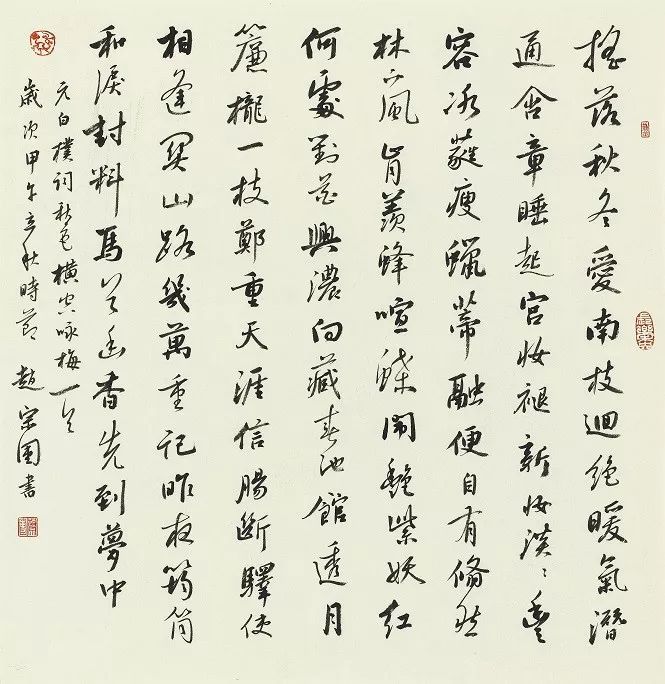 搖落秋冬愛南枝迴絕暖氣潛
通含章睡起宮妝褪新妝淡〻豐
容冰蕤瘦蠟蒂融便自有翛然
林下風肯羨蜂喧蝶鬧艷紫妖紅
何處對花興濃向藏春池館透月
簾櫳一枝鄭重天涯信腸斷驛使
相逢關山路幾萬重記昨夜筠筒
和淚封料馬首幽香先到夢中
元白樸詞秋色橫空咏梅一首
歲次甲午立秋時節 趙宋国書